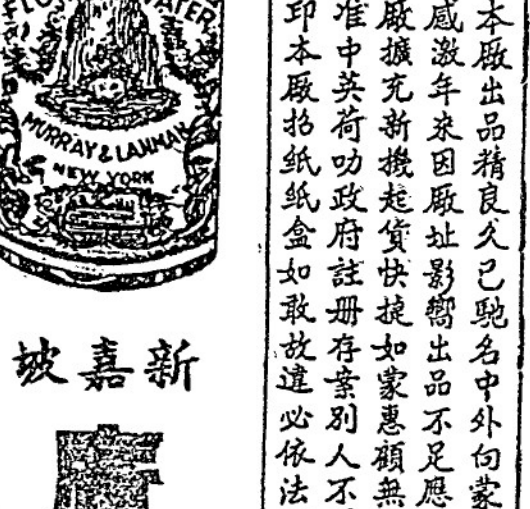 本厰出品精良久已馳名中外向蒙
感激年來因厰址影嚮出品不足應
厰擴充新機起貨快捷如蒙惠顧無
准中英荷叻政府註册存案別人不
印本厰招紙紙盒如敢故違必依法
WATER
MURRAY & LANMAN
NEW YORK
新嘉坡